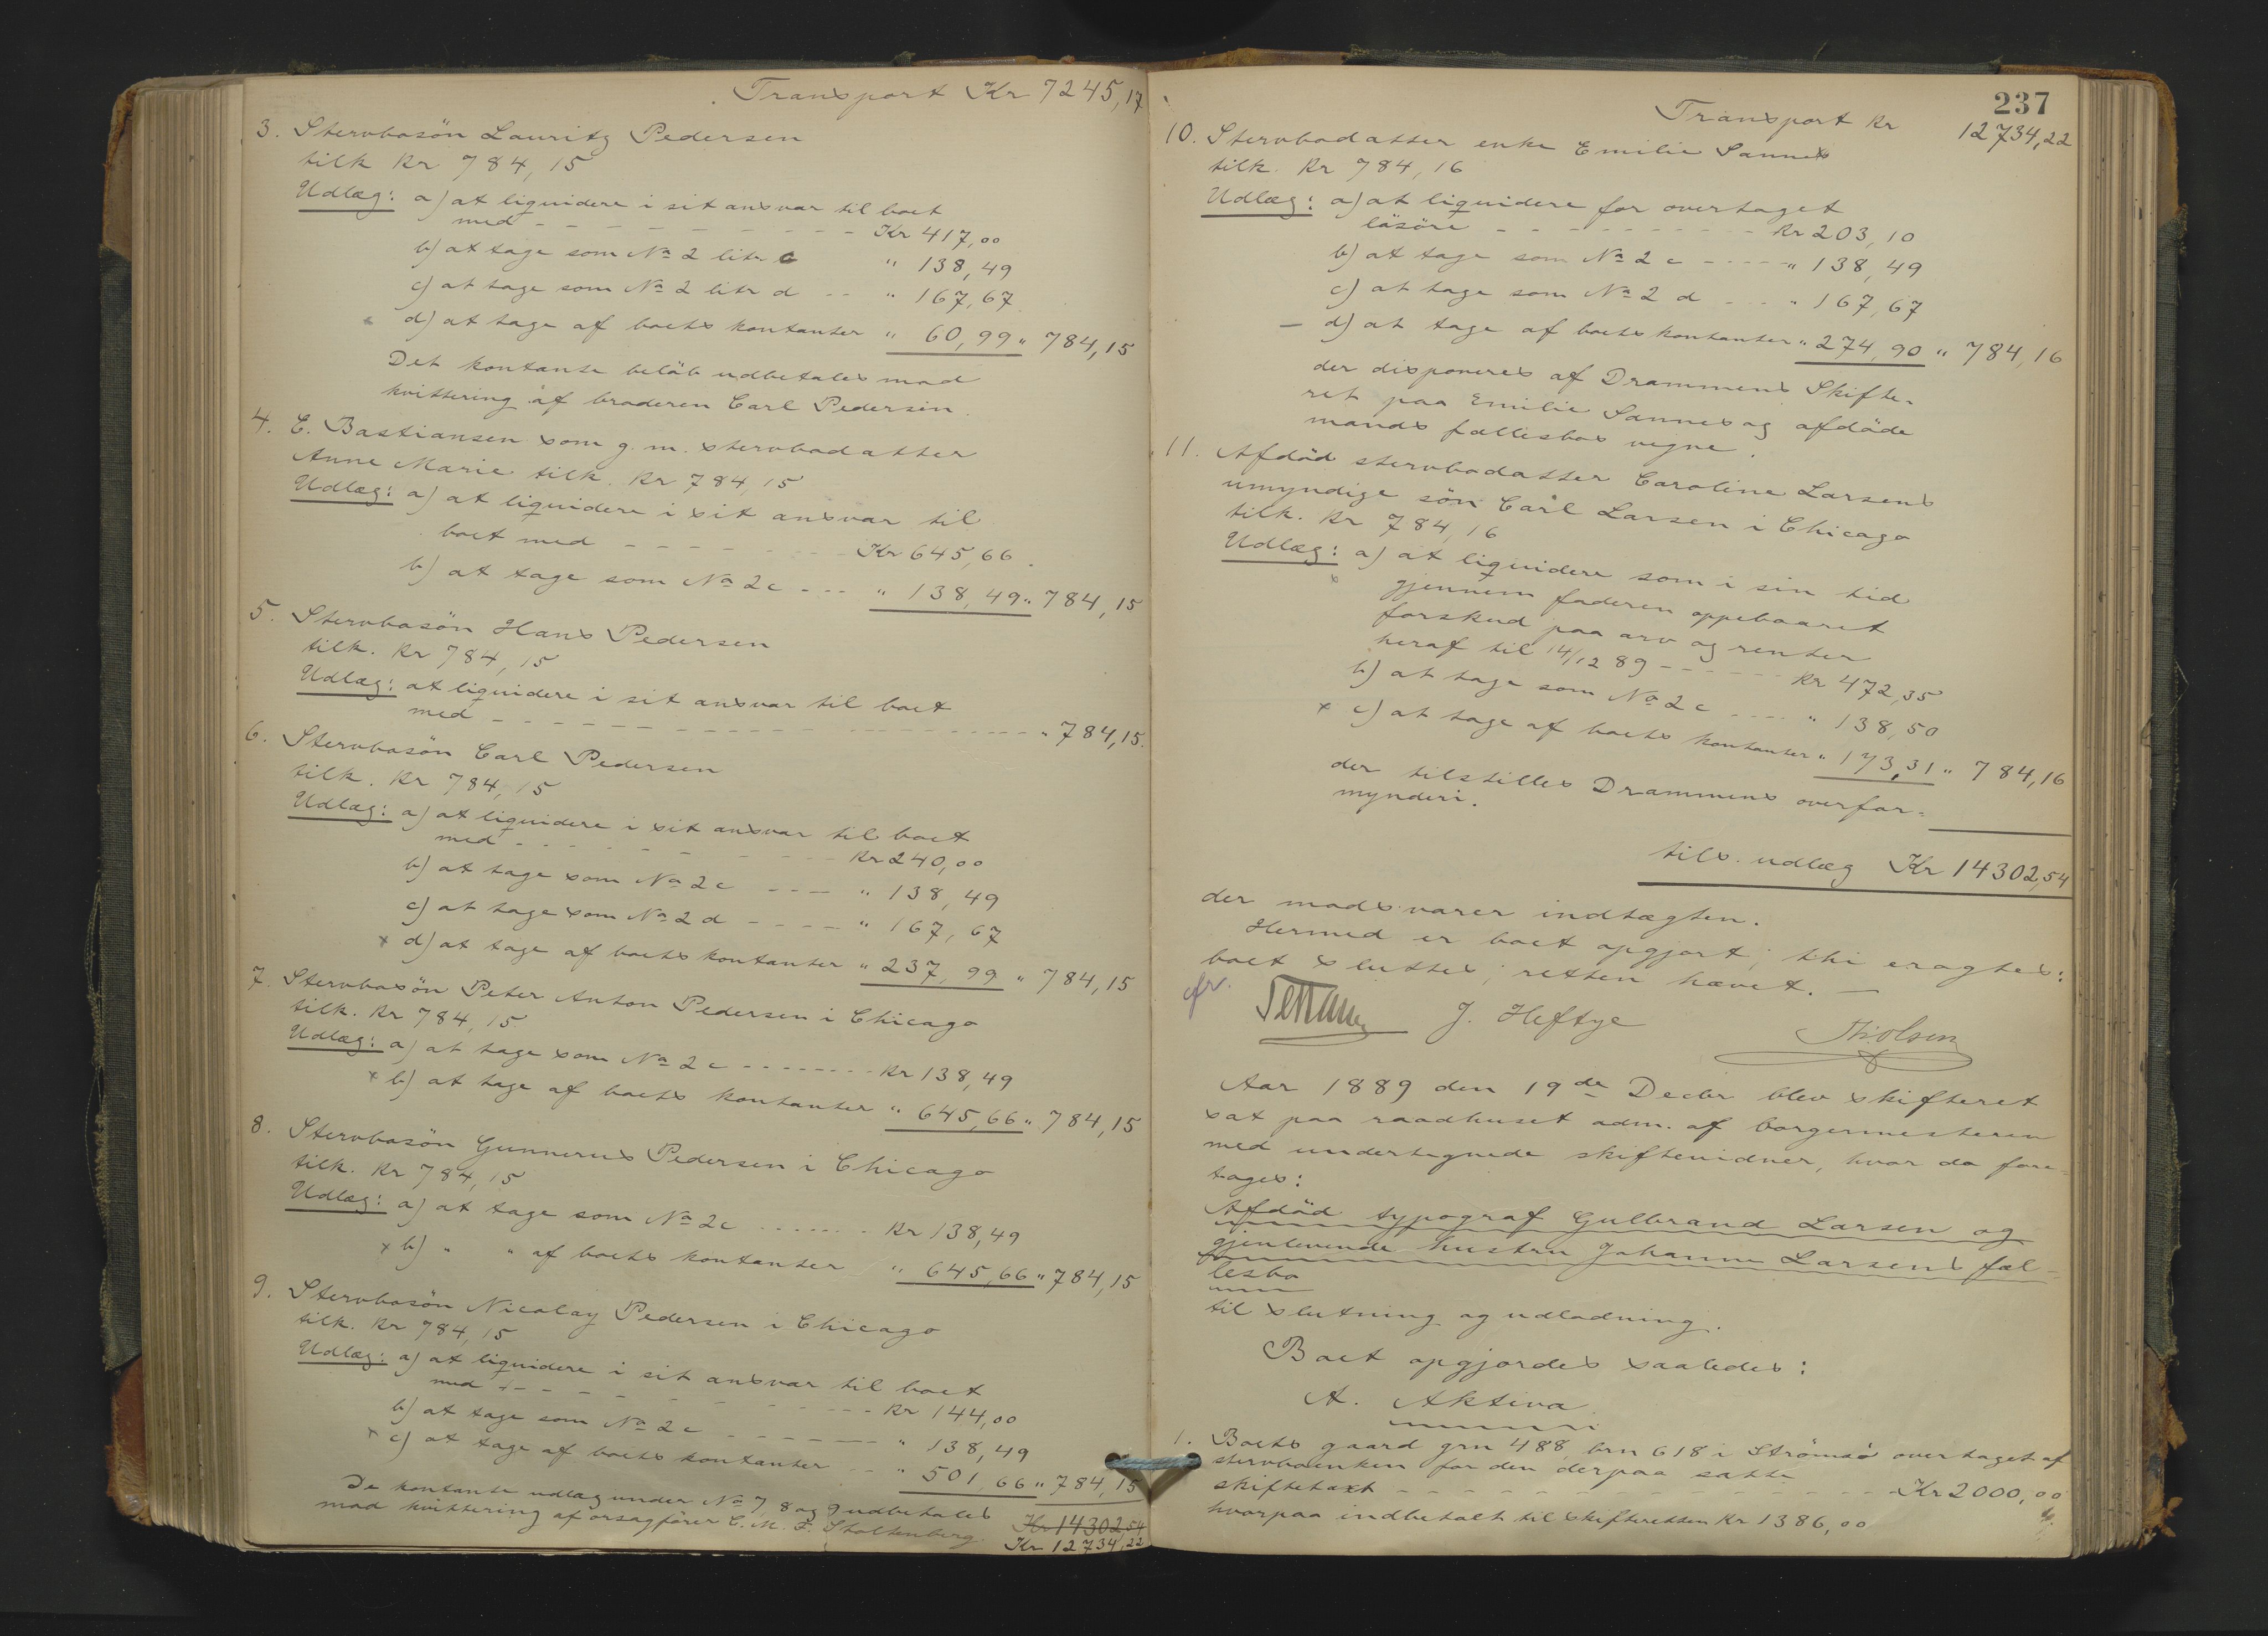 Transport Kr 7245,17
3. Stervbosön Lauritz Pedersen
tilk Kr 784,15
Udlæg: a) at liquidere i sit ansvar til boet
med - - - - - - - - - - Kr 417,00
b) at tage som No 2 litr c " 138,49
c) at tage som No 2 litr d - - " 167,67
d) at tage af boets kontanter " 60,99 " 784,15
Det kontante beløb udbetales mod
kvittering af broderen Carl Pedersen.
4. E. Bastiansen som g. m. stervbodatter
Anne Marie tilk. Kr 784,15
Udlæg: a) at liquidere i sit ansvar til
boet med - - - - - - - Kr 645,66.
b) at tage som No 2c - - - " 138,49 " 784,15
5. Stervbosön Hans Pedersen
tilk. Kr 784,15
Udlæg: at liquidere i sit ansvar til boet
med - - - - - - - - - - - - - - - - " 784,15.
6. Stervbosön Carl Pedersen
tilk. Kr 784,15
Udlæg: a) at liquidere i sit ansvar til boet
med - - - - - - - - - - Kr 240,00
b) at tage som No 2c - - - " 138,49
c) at tage som No 2 d - - - - " 167,67
x d) at tage af boets kontanter " 237,99 " 784,15
7. Stervbosön Peter Anton Pedersen i Chicago
tilk. Kr 784,15
Udlæg: a) at tage som No 2c - - - - - - - - Kr 138,49
x b) at tage af boets kontanter " 645,66 " 784,15
8. Stervbosön Gunnerius Pedersen i Chicago
tilk. Kr 784,15
Udlæg: a) at tage som No 2c - - - - - - - Kr 138,49
x b) " " af boets kontanter " 645,66 " 784,15
9. Stervbosön Nicolay Pedersen i Chicago
tilk. Kr 784,15
Udlæg: a) at liquidere i sit ansvar til boet
med - - - - - - - - - - - Kr 144,00
b) at tage som No 2c - - - - - - " 138,49
x c) at tage af boets kontanter - - " 501,66 " 784,15
De kontante udlæg under No 7, 8 og 9 udbetales
mod kvittering af orsagfører C. M. F. Stoltenberg. Kr 14302,54
Kr 12734,22
237
Transport Kr 12734,22
10. Stervbodatter enke Emilie Sannes
tilk. Kr 784,16
Udlæg: a) at liquidere for overtaget
läsöre - - - - - - - - - - Kr 203,10
b) at tage som No 2 c - - - - - " 138,49
c) at tage som No 2 d - - - " 167,67
- d) at tage af boets kontanter " 274,90 " 784,16
der disponeres af Drammens Skifte-
ret paa Emilie Sannes og afdöde
mands fællesbos vegne.
11. Afdöd stervbodatter Caroline Larsens
umyndige sön Carl Larsen i Chicago
tilk. Kr 784,16
Udlæg: a) at liquidere som i sin tid
x gjennem faderen oppebaaret
forskud paa arv og renter
heraf til 14/12 89 - - - - - - Kr 472,35
b) at tage som No 2 c - - - - " 138,50
x c) at tage af boets kontanter " 173,31 " 784,16
der tilstilles Drammens overfor-
mynderi.
tils. udlæg Kr 14302,54
der modsvarer indtægten.
Hermed er boet opgjort; thi eragtes:
boet sluttes; retten hævet. -
cfr. J. Heftye Th. Olsen
Aar 1889 den 19de Decbr blev skifteret
sat paa raadhuset adm. af borgermesteren
med undertegnede skiftevidner, hvor da fore-
tages:
Afdöd typograf Gulbrand Larsen og
gjenlevende hustru Johanne Larsens fæl-
lesbo
til slutning og udlodning.
Boet opgjordes saaledes:
A. Aktiva
1. Boets gaard grn 488 brn 618 i Strömsö overtaget af
stervboenken for den derpaa satte
skiftetaxt - - - - - - - - - - - - - - - - - Kr 2000,00
hvorpaa indbetalt til skifteretten Kr 1386,00